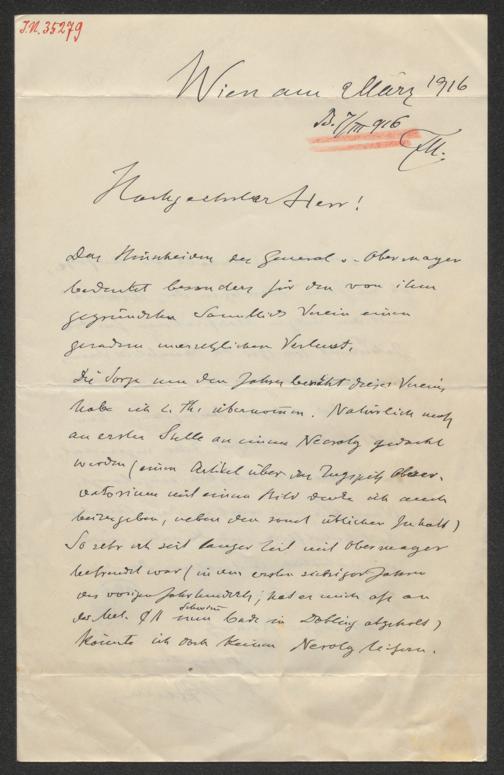 J.N. 35279
Wien am 2 März 1916
B. 7/III 916
Hochgeehrter Herr!
Das Hinscheiden des General v. Obermayer
bedeutet besonders für den von ihm
gegründeten Sonnblick Verein einen
geradezu unersetzlichen Verlust.
Die Sorge um den Jahresbericht dieses Vereins
habe ich z. Th. übernommen. Natürlich muß
an erster Stelle an einen Necrolog gedacht
werden (einen Artikel über das Zugspitz Obser-
vatorium mit einem Bild denke ich auch
beizugeben, neben dem sonst üblichen Inhalt)
So sehr ich seit langer Zeit mit Obermayer
befreundet war (in den ersten siebziger Jahren
des vorigen Jahrhunderts, hat er mich oft an
der Met. zum Schwimm
bade in Döbling abgeholt)
könnte ich doch keinen Necrolog liefern.